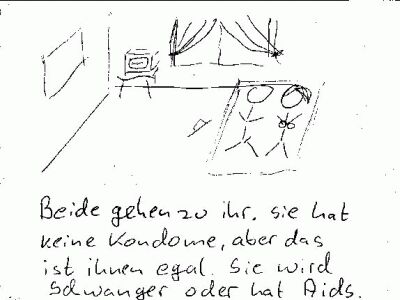 Beide gehen zu ihr. sie hat
keine Kondome, aber das
ist ihnen egal. Sie wird
Schwanger oder hat Aids.